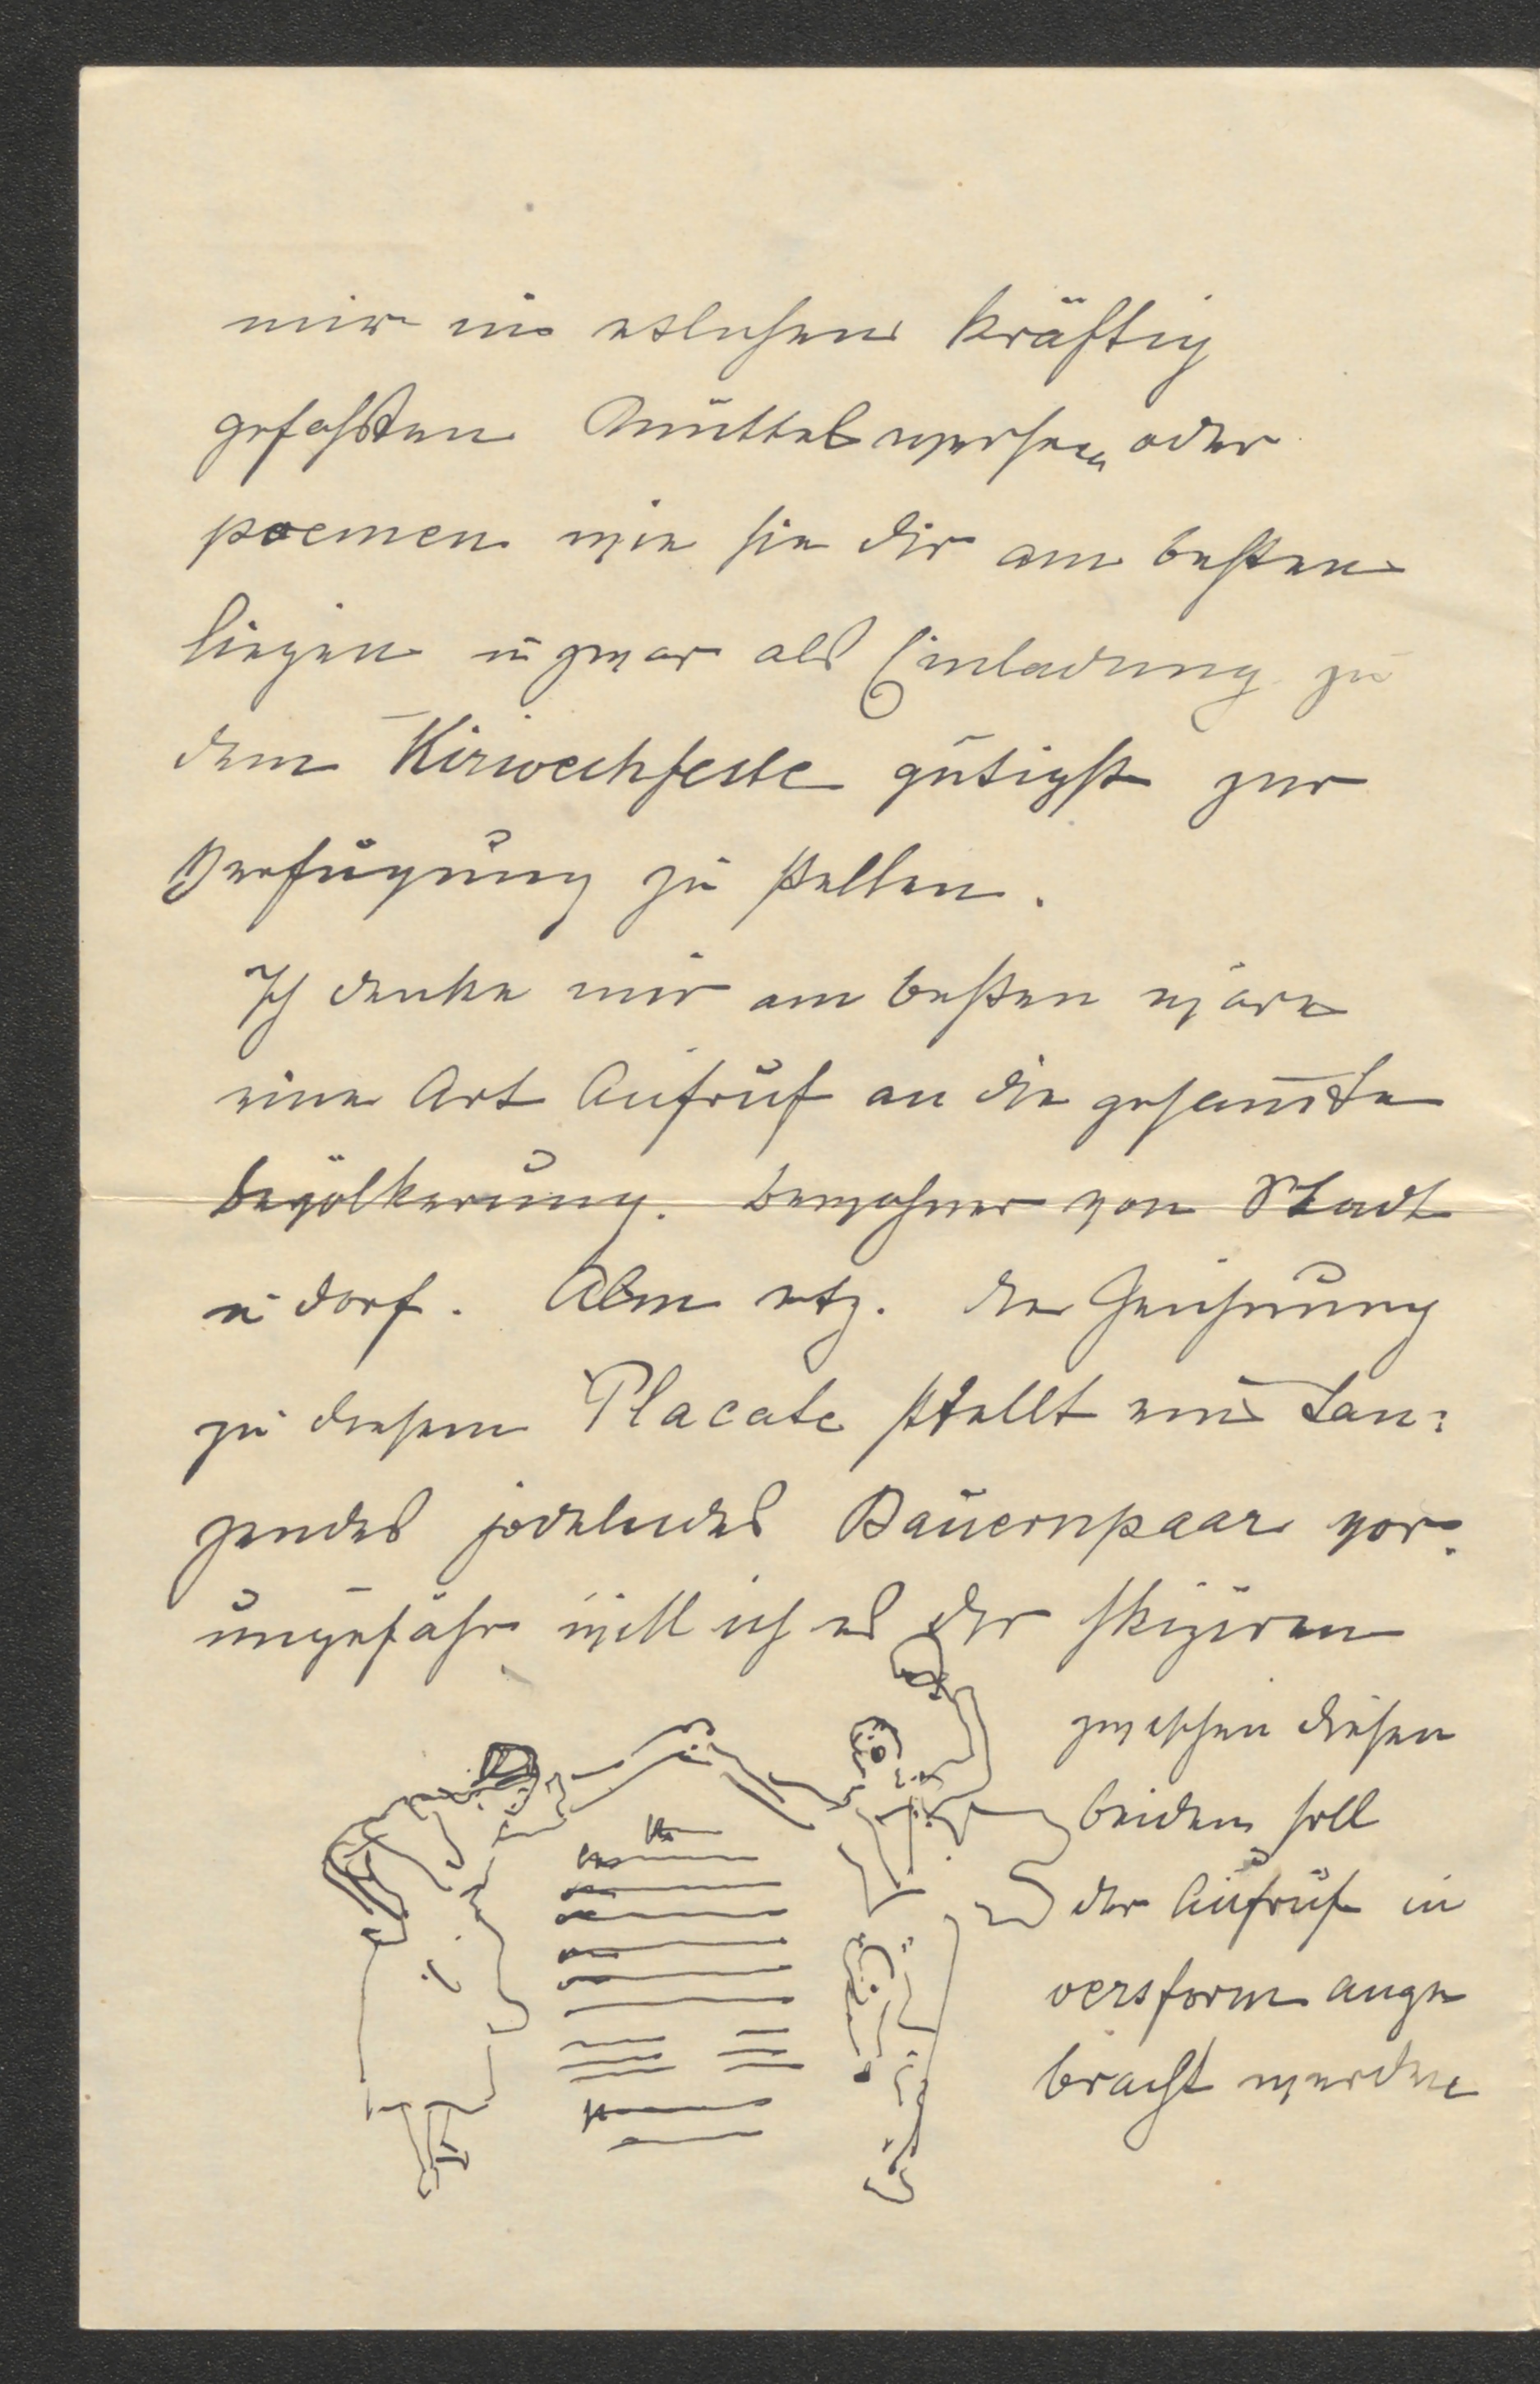 mir in etlichen kräftig
gefaßten Knüttelversen oder
poemen wie sie dir am besten
liegen u zwar als Einladung zu
dem Kirwechfeste gütigst zur
Verfügung zu stellen.
Ich denke mir am besten wäre
eine Art Aufruf an die gesam̅te
bevölkerung. bewohner von Stadt
u dorf. Alm etz. die Zeichnung
zu diesem Placate stellt ein tan:
zendes jodelndes Bauernpaar vor.
ungefähr will ich es dir skiziren
zwischen diesen
beiden soll
der Aufruf in
versform ange
bracht werden